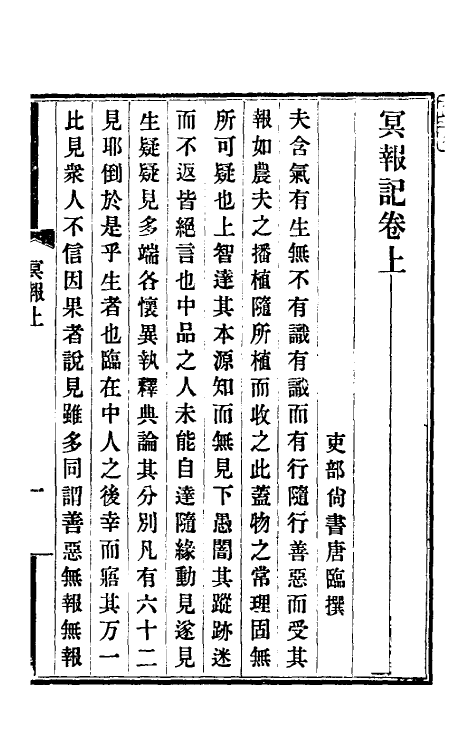 冥報記卷上
吏部尙書唐臨撰
夫含氣有生無不有識有識而有行隨行善惡而受其
報如農夫之播植隨所植而收之此蓋物之常理固無
所可疑也上智達其本源知而無見下愚闇其蹤跡迷
而不返皆絕言也中品之人未能自達隨緣動見逐見
生疑疑見多端各懷異執釋典論其分別凡有六十二
見耶倒於是乎生者也臨在中人之後幸而寤其万一
比見衆人不信因果者說見雖多同謂善惡無報無報
冥報上
一